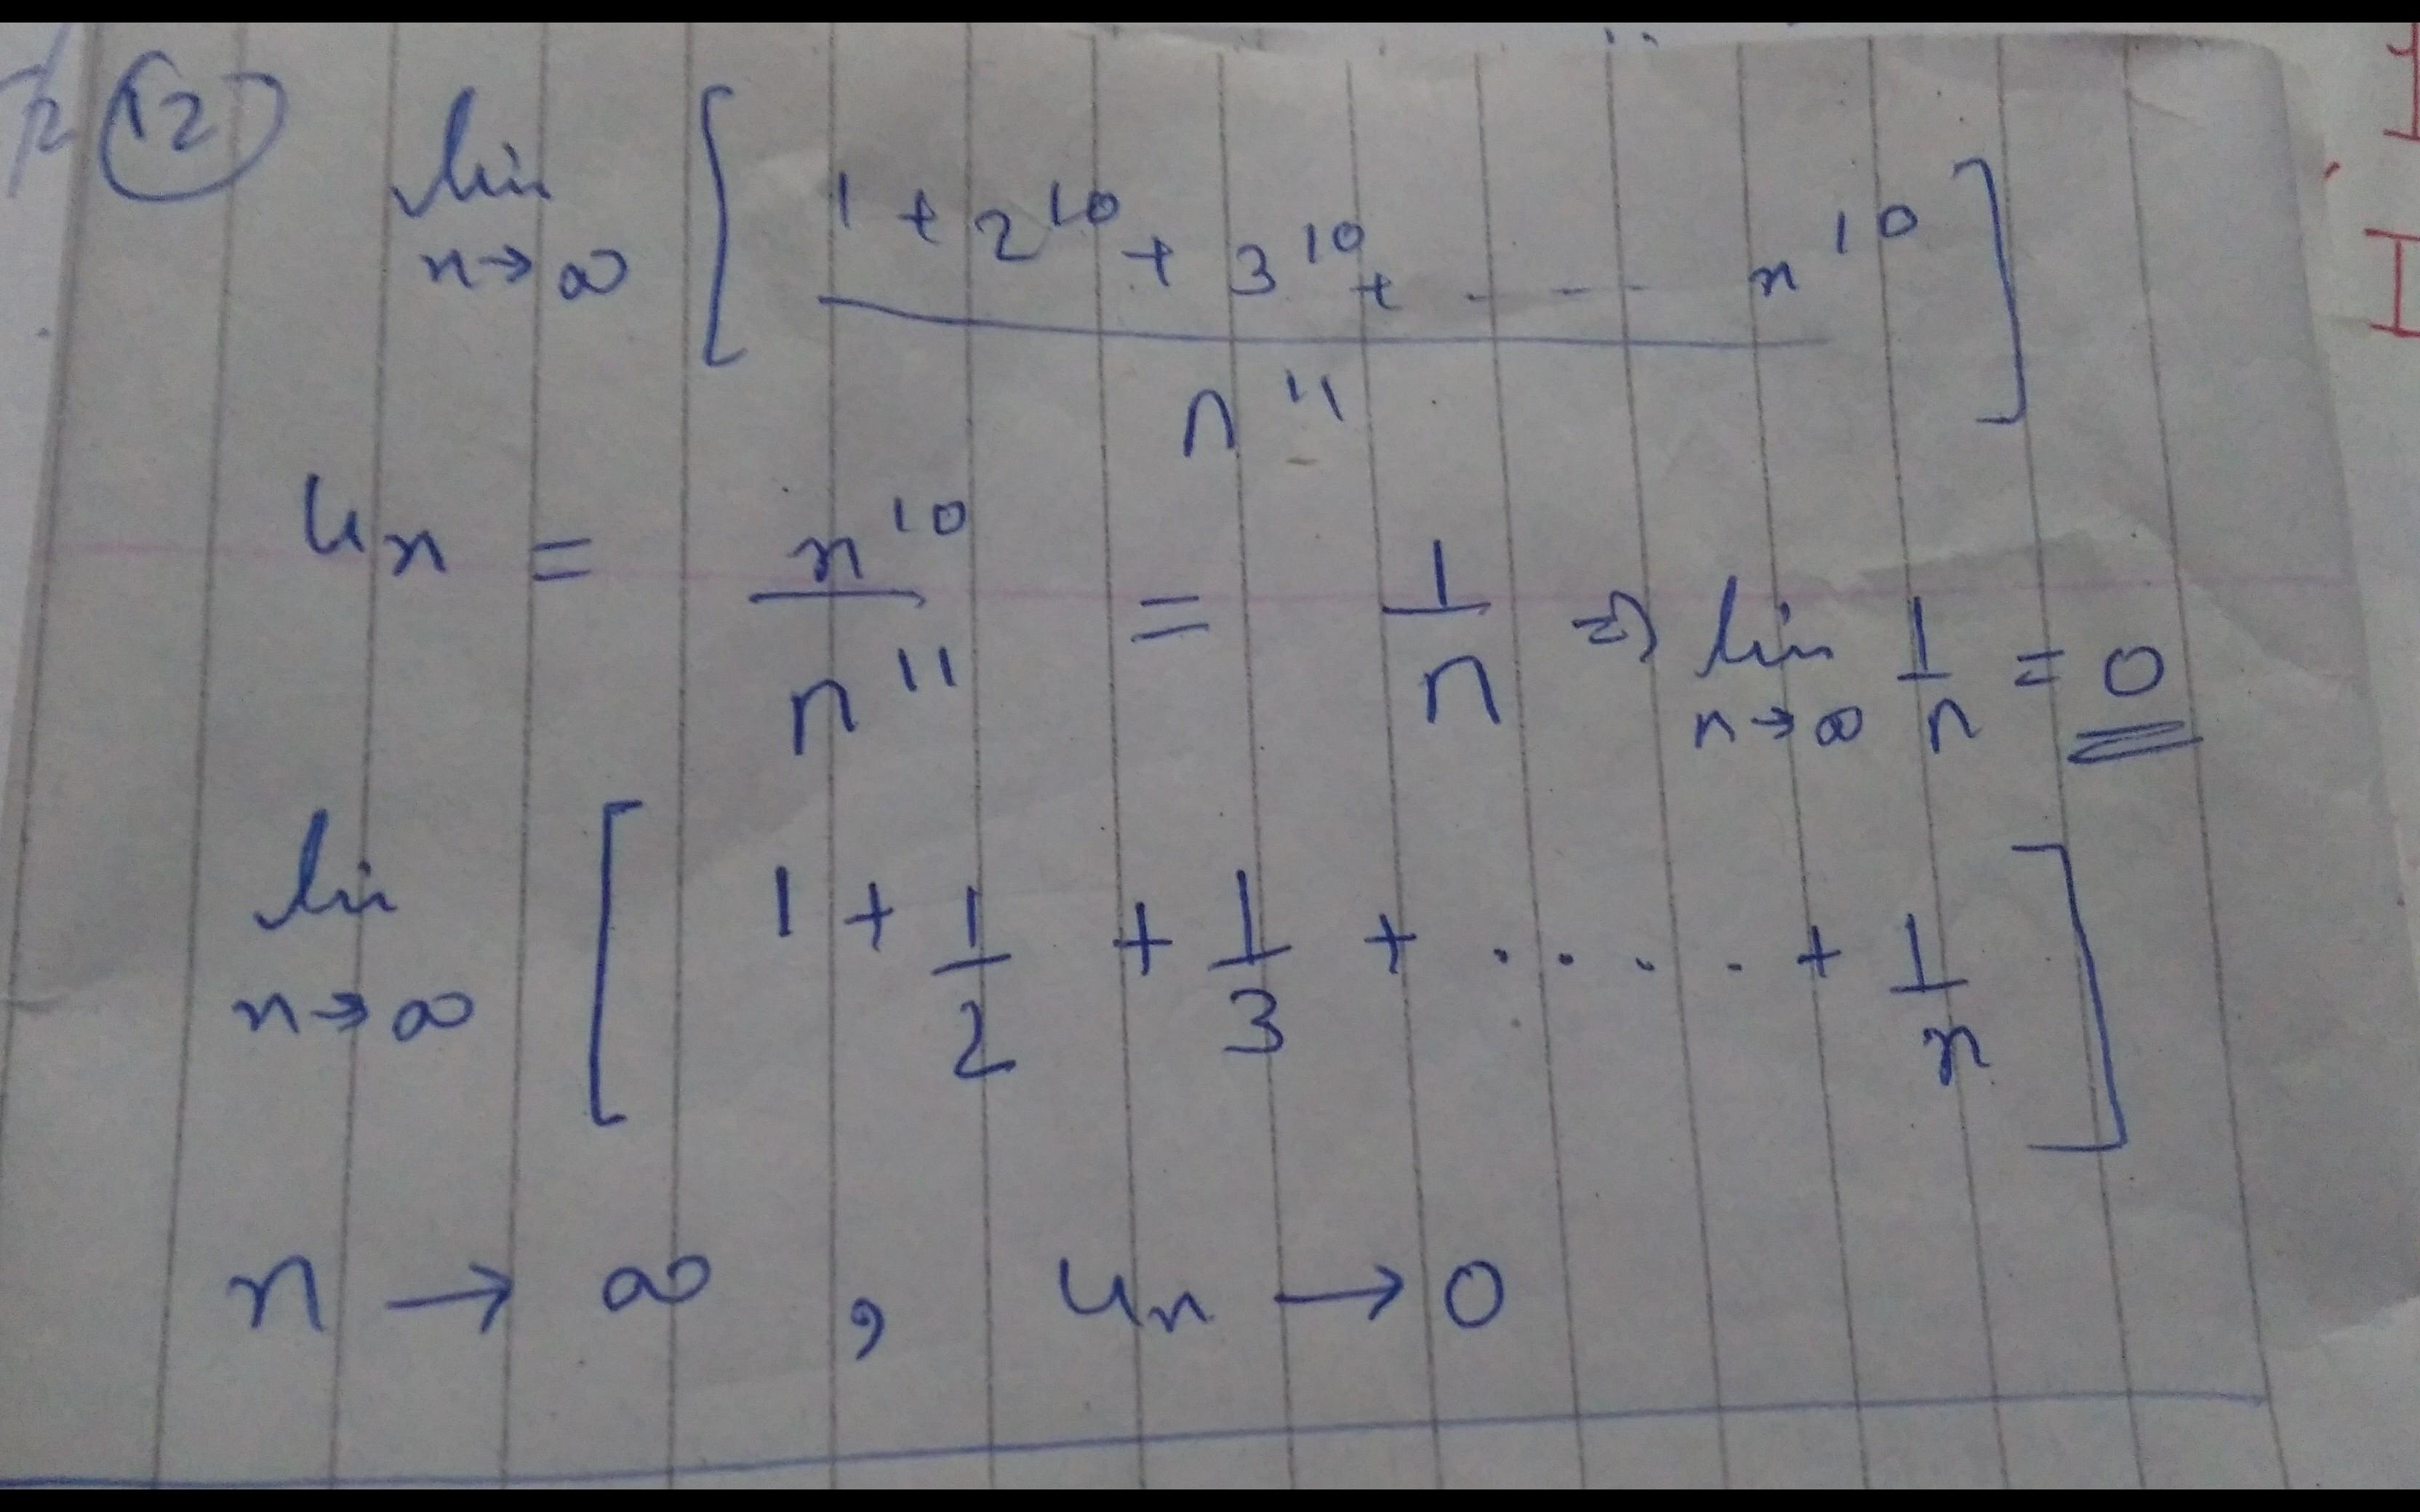 (12) lim n→∞ [ (1 + 2^10 + 3^10 + - - - n^10) / n^11 ]
u_n = n^10 / n^11 = 1/n ⇒ lim n→∞ 1/n = 0
lim n→∞ [ 1 + 1/2 + 1/3 + ..... + 1/n ]
n → ∞ , u_n → 0